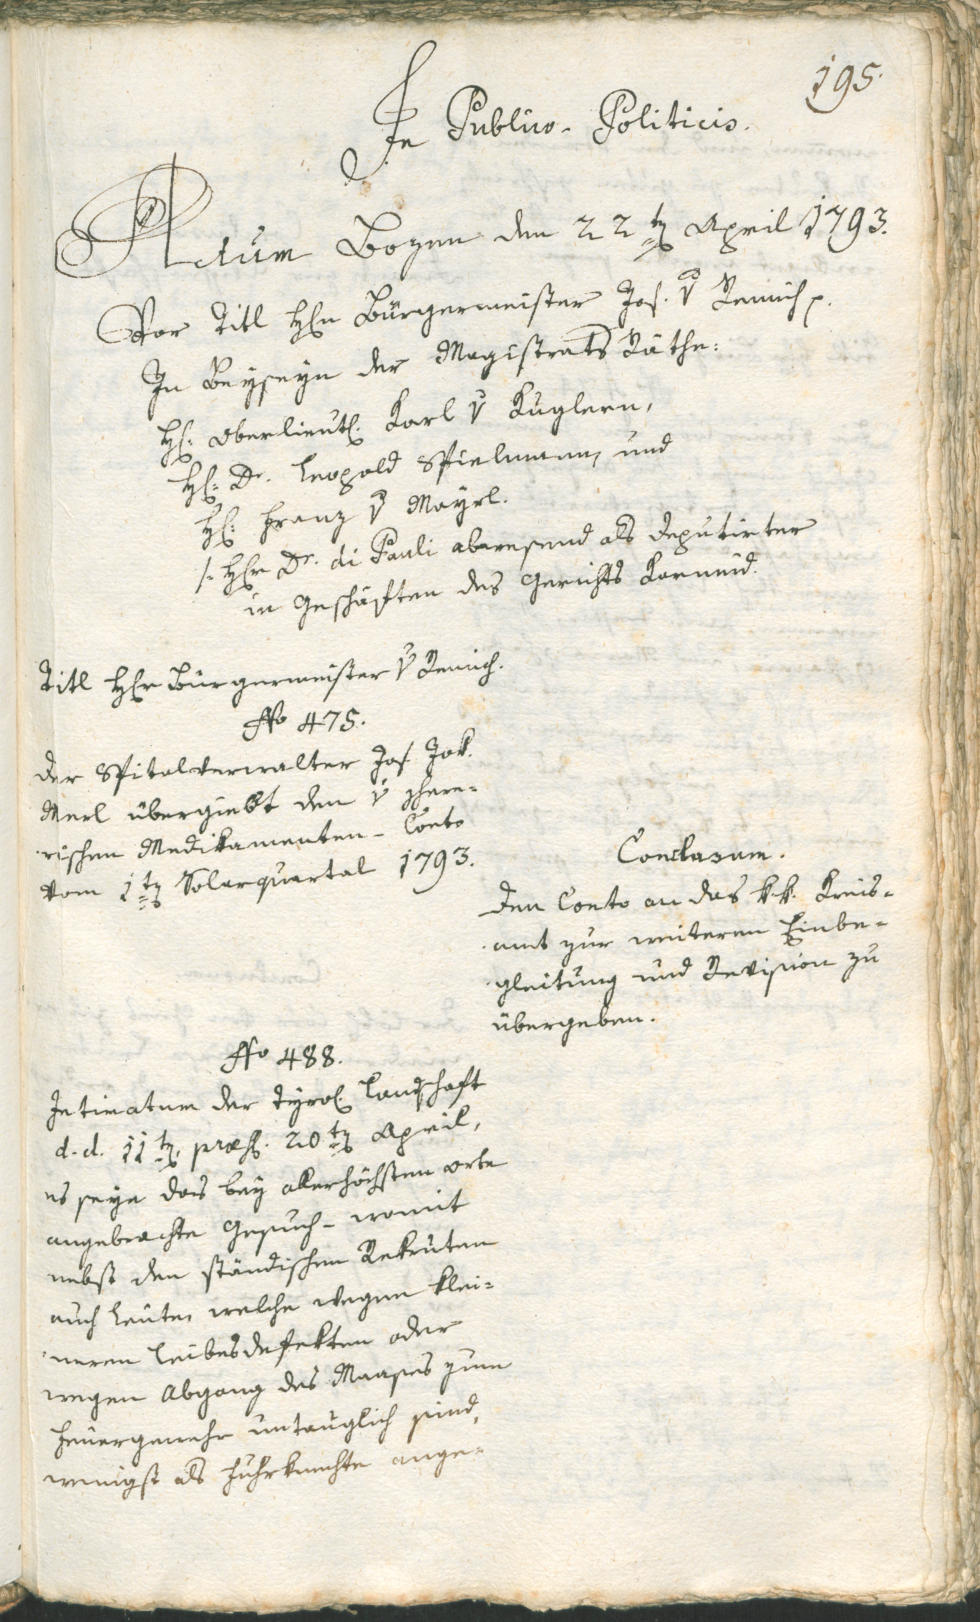 195.
In Publico-Politicis.
Actum Bozen den 22ten April 1793.
Vor Titl Hℓn Bürgermeister Jos. v Remich p.
In Beyseyn der Magistrats Räthe:
Hℓ: Oberlieutℓ. Karl v Kuglern,
Hℓ: Dr. Leopold Spielmann, und
Hℓ: Franz v Mayrl.
/: Hℓr Dr. di Pauli abwesend als deputirter
in Geschäften des Gerichts Karneid.
Titl Hℓr Bürgermeister v Remich.
No 475.
Der Spitalverwalter Jos. Jak.
Merl übergiebt den v
rischen Medikamenten-Conto
vom 1ten Solarquartal 1793.
Conclusum.
Den Conto an das k.k. Kreis=
amt zur weiteren Einbe=
gleitung und Revision zu
übergeben.
No 488.
Intimatum der Tyrol. Landschaft
d.d. 11ten, præs. 20ten April,
es seye das bey allerhöchsten Orte
angebrachte Gesuch- womit
nebst den ständischen Rekruten
auch Leute, welche wegen klei=
neren Leibesdefekten oder
wegen Abgang des Maases zum
Feuergewehr untauglich sind,
wenigst als Fuhrknechte ange=